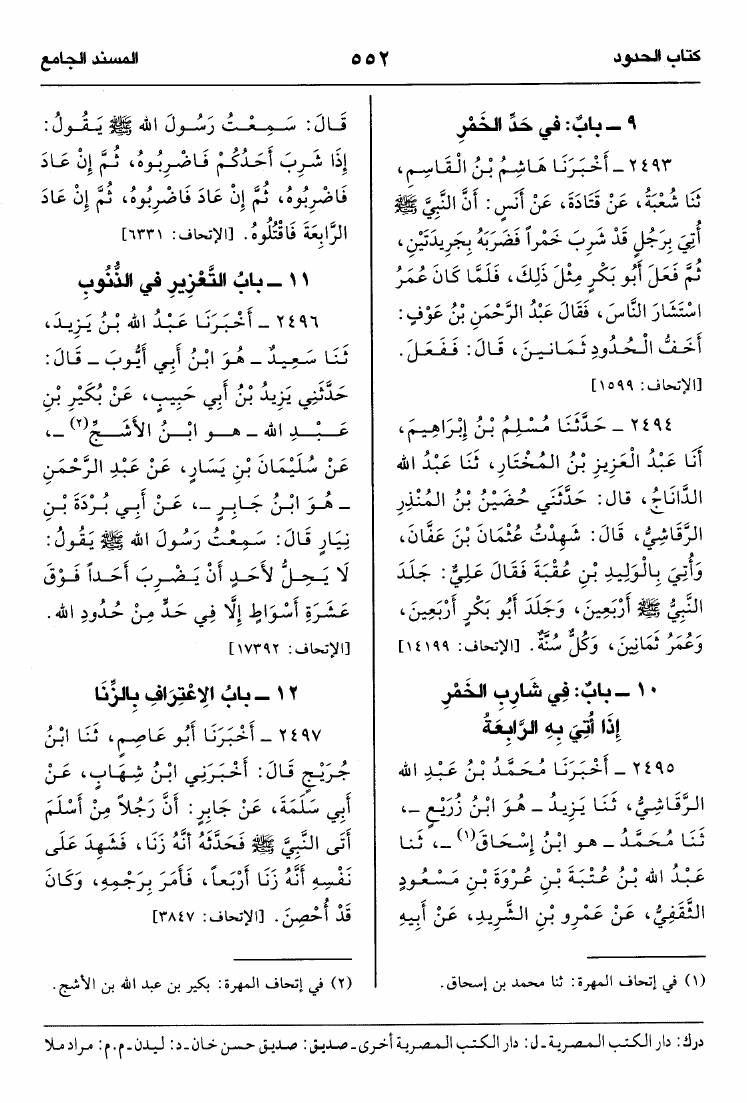 كتاب الحدود ٥٥٢ المسند الجامع
٩ ـ بابٌ: في حَدِّ الخَمْرِ
٢٤٩٣ ـ أَخْبَرَنَا هَاشِمُ بْنُ الْقَاسِمِ،
ثَنَا شُعْبَةُ، عَنْ قَتَادَةَ، عَنْ أَنَسٍ: أَنَّ النَّبِيَّ ﷺ
أُتِيَ بِرَجُلٍ قَدْ شَرِبَ خَمْراً فَضَرَبَهُ بِجَرِيدَتَيْنِ،
ثُمَّ فَعَلَ أَبُو بَكْرٍ مِثْلَ ذَلِكَ، فَلَمَّا كَانَ عُمَرُ
اسْتَشَارَ النَّاسَ، فَقَالَ عَبْدُ الرَّحْمَنِ بْنُ عَوْفٍ:
أَخَفُّ الْحُدُودِ ثَمَانِينَ، قَالَ: فَفَعَلَ.
[الإتحاف: ١٥٩٩]
٢٤٩٤ ـ حَدَّثَنَا مُسْلِمُ بْنُ إِبْرَاهِيمَ،
أَنَا عَبْدُ الْعَزِيزِ بْنُ الْمُخْتَارِ، ثَنَا عَبْدُ الله
الدَّانَاجُ، قال: حَدَّثَنِي حُضَيْنُ بْنُ الْمُنْذِرِ
الرَّقَاشِيُّ، قَالَ: شَهِدْتُ عُثْمَانَ بْنَ عَفَّانَ،
وَأُتِيَ بِالْوَلِيدِ بْنِ عُقْبَةَ فَقَالَ عَلِيٌّ: جَلَدَ
النَّبِيُّ ﷺ أَرْبَعِينَ، وَجَلَدَ أَبُو بَكْرٍ أَرْبَعِينَ،
وَعُمَرُ ثَمَانِينَ، وَكُلٌّ سُنَّةٌ. [الإتحاف: ١٤١٩٩]
١٠ ـ بابٌ: فِي شَارِبِ الخَمْرِ
إِذَا أُتِيَ بِهِ الرَّابِعَةُ
٢٤٩٥ ـ أَخْبَرَنَا مُحَمَّدُ بْنُ عَبْدِ الله
الرَّقَاشِيُّ، ثَنَا يَزِيدُ ـ هُوَ ابْنُ زُرَيْعٍ ـ،
ثَنَا مُحَمَّدُ ـ هو ابْنُ إِسْحَاقَ(١) ـ، ثَنا
عَبْدُ الله بْنُ عُتْبَةَ بْنِ عُرْوَةَ بْنِ مَسْعُودٍ
الثَّقَفِيُّ، عَنْ عَمْرِو بْنِ الشَّرِيدِ، عَنْ أَبِيهِ
(١) في إتحاف المهرة: ثنا محمد بن إسحاق.
قَالَ: سَمِعْتُ رَسُولَ الله ﷺ يَقُولُ:
إِذَا شَرِبَ أَحَدُكُمْ فَاضْرِبُوهُ، ثُمَّ إِنْ عَادَ
فَاضْرِبُوهُ، ثُمَّ إِنْ عَادَ فَاضْرِبُوهُ، ثُمَّ إِنْ عَادَ
الرَّابِعَةَ فَاقْتُلُوهُ. [الإتحاف: ٦٣٣١]
١١ ـ بابُ التَّعْزِيرِ في الذُّنُوبِ
٢٤٩٦ ـ أَخْبَرَنَا عَبْدُ الله بْنُ يَزِيدَ،
ثَنَا سَعِيدٌ ـ هُوَ ابْنُ أَبِي أَيُّوبَ ـ قَالَ:
حَدَّثَنِي يَزِيدُ بْنُ أَبِي حَبِيبٍ، عَنْ بُكَيْرِ بْنِ
عَبْدِ الله ـ هو ابْنُ الأَشَجِّ(٢) ـ،
عَنْ سُلَيْمَانَ بْنِ يَسَارٍ، عَنْ عَبْدِ الرَّحْمَنِ
ـ هُوَ ابْنُ جَابِرٍ ـ، عَنْ أَبِي بُرْدَةَ بْنِ
نِيَارٍ قَالَ: سَمِعْتُ رَسُولَ الله ﷺ يَقُولُ:
لَا يَحِلُّ لأَحَدٍ أَنْ يَضْرِبَ أَحَداً فَوْقَ
عَشَرَةِ أَسْوَاطٍ إِلَّا فِي حَدٍّ مِنْ حُدُودِ الله.
[الإتحاف: ١٧٣٩٢]
١٢ ـ بابُ الِاعْتِرَافِ بِالزِّنَا
٢٤٩٧ ـ أَخْبَرَنَا أَبُو عَاصِمٍ، ثَنَا ابْنُ
جُرَيْجٍ قَالَ: أَخْبَرَنِي ابْنُ شِهَابٍ، عَنْ
أَبِي سَلَمَةَ، عَنْ جَابِرٍ: أَنَّ رَجُلاً مِنْ أَسْلَمَ
أَتَى النَّبِيَّ ﷺ فَحَدَّثَهُ أَنَّهُ زَنَا، فَشَهِدَ عَلَى
نَفْسِهِ أَنَّهُ زَنَا أَرْبَعاً، فَأَمَرَ بِرَجْمِهِ، وَكَانَ
قَدْ أُحْصِنَ. [الإتحاف: ٣٨٤٧]
(٢) في إتحاف المهرة: بكير بن عبد الله بن الأشج.
درك: دار الكتب المصرية ـ ل: دار الكتب المصرية أخرى ـ صديق: صديق حسن خان ـ د: ليدن ـ م.م: مراد ملا